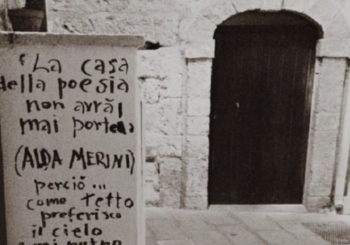 "La casa
della poesia
non avrà
mai porte"
(ALDA MERINI)
perciò...
come tetto
preferisco
il cielo